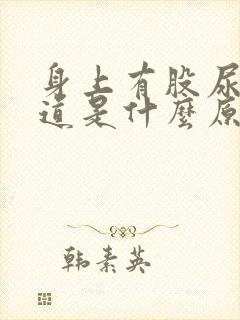 身上有股尿
道是什麼原
韩素英